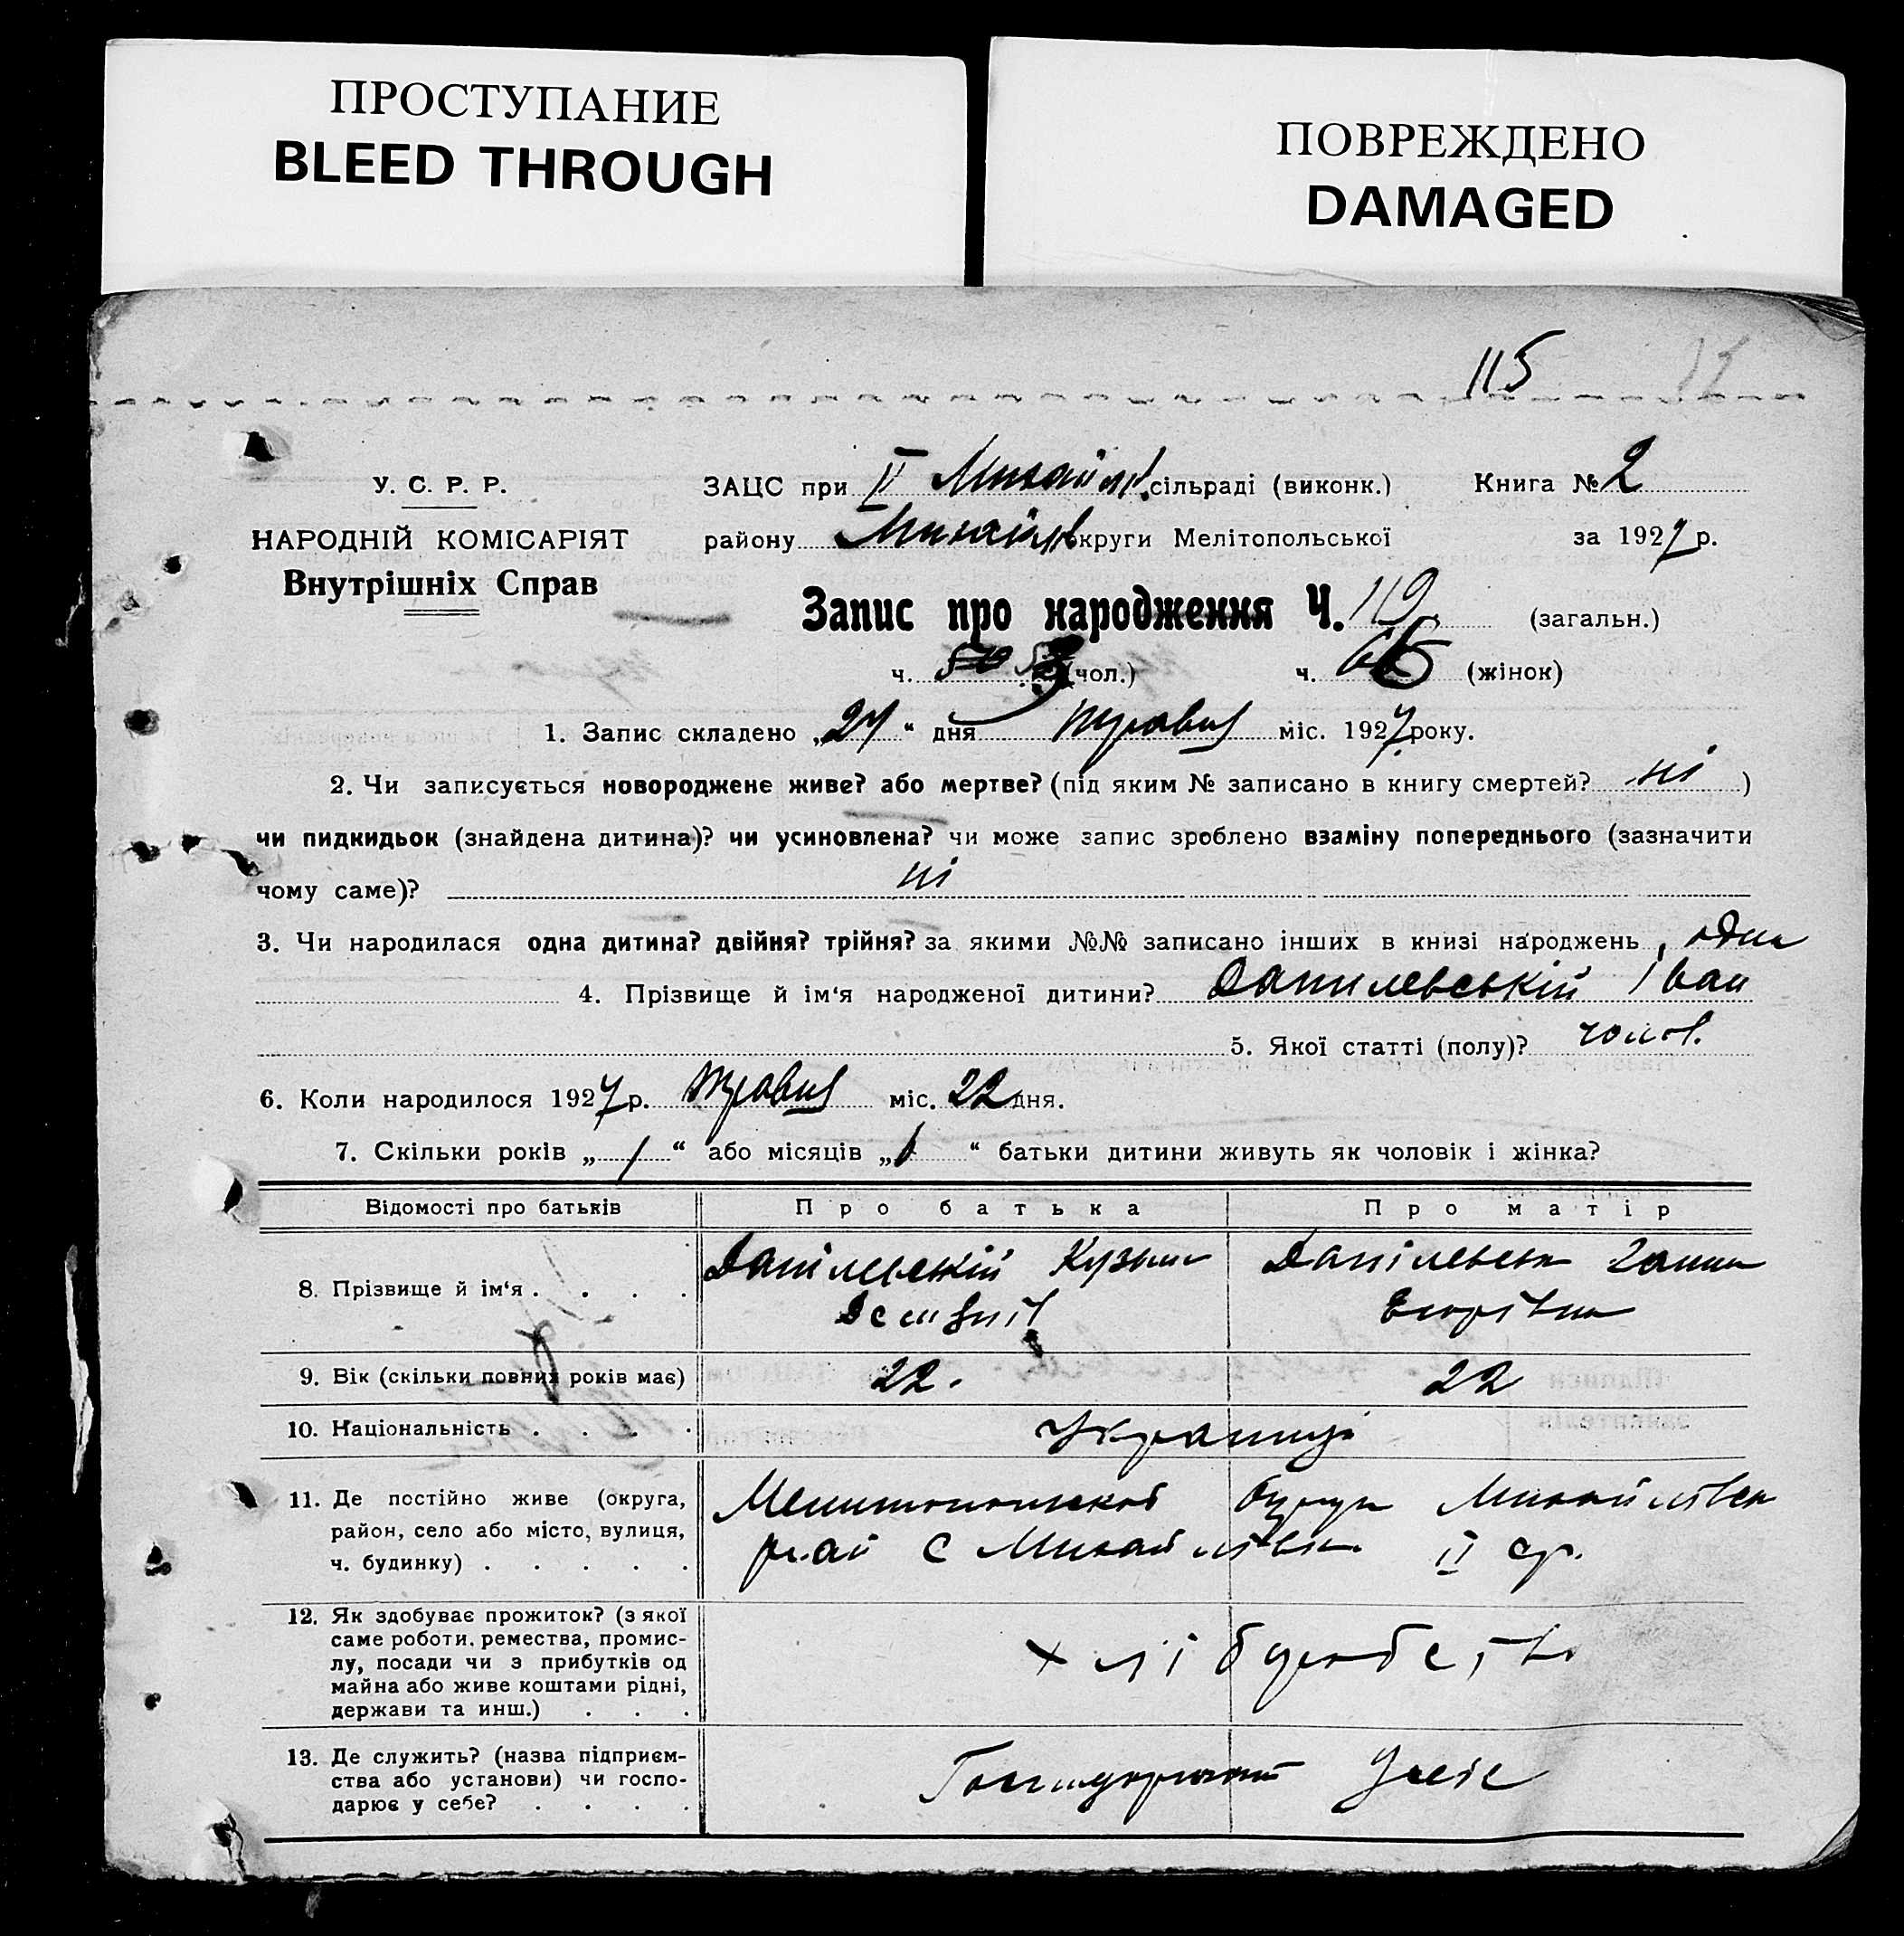 ПРОСТУПАНИЕ
BLEED THROUGH
ПОВРЕЖДЕНО
DAMAGED
115
У. С. Р. Р.
НАРОДНІЙ КОМІСАРІЯТ
Внутрішніх Справ
ЗАЦС при ІІ Михайлі. сільраді (виконк.) Книга № 2
району Михайлів округи Мелітопольської за 1927 р.
Запис про народження Ч. 119 (загальн.)
ч. 53 (чол.) ч. 66 (жінок)
1. Запис складено „24“ дня травня міс. 1927 року.
2. Чи записується новороджене живе? або мертве? (під яким № записано в книгу смертей? ні )
чи пидкидьок (знайдена дитина)? чи усиновлена? чи може запис зроблено взаміну попереднього (зазначити
чому саме)? ні
3. Чи народилася одна дитина? двійня? трійня? за якими №№ записано інших в книзі народжень, одна
4. Прізвище й ім‘я народженої дитини? Данилевській Іван
5. Якої статті (полу)? чолов.
6. Коли народилося 1927 р. травня міс. 22 дня.
7. Скільки років „ / “ або місяців „ “ батьки дитини живуть як чоловік і жінка?
Відомості про батьків Про батька Про матір
8. Прізвище й ім‘я . . . . Данілевській Кузьма Данілевська Ганна
Єгорівна
9. Вік (скільки повних років має) 22. 22
10. Національність . . . . Українці
11. Де постійно живе (округа, район, село або місто, вулиця, ч. будинку) . . . . . Мелитопольської округи Михайлівськ
рай с Михайлівка ІІ ср.
12. Як здобуває прожиток? (з якої саме роботи, ремества, промислу, посади чи з прибутків од майна або живе коштами рідні, держави та инш.) . . . хлібуробство
13. Де служить? (назва підприємства або установи) чи господарює у себе? . . . . Господарюют у себе